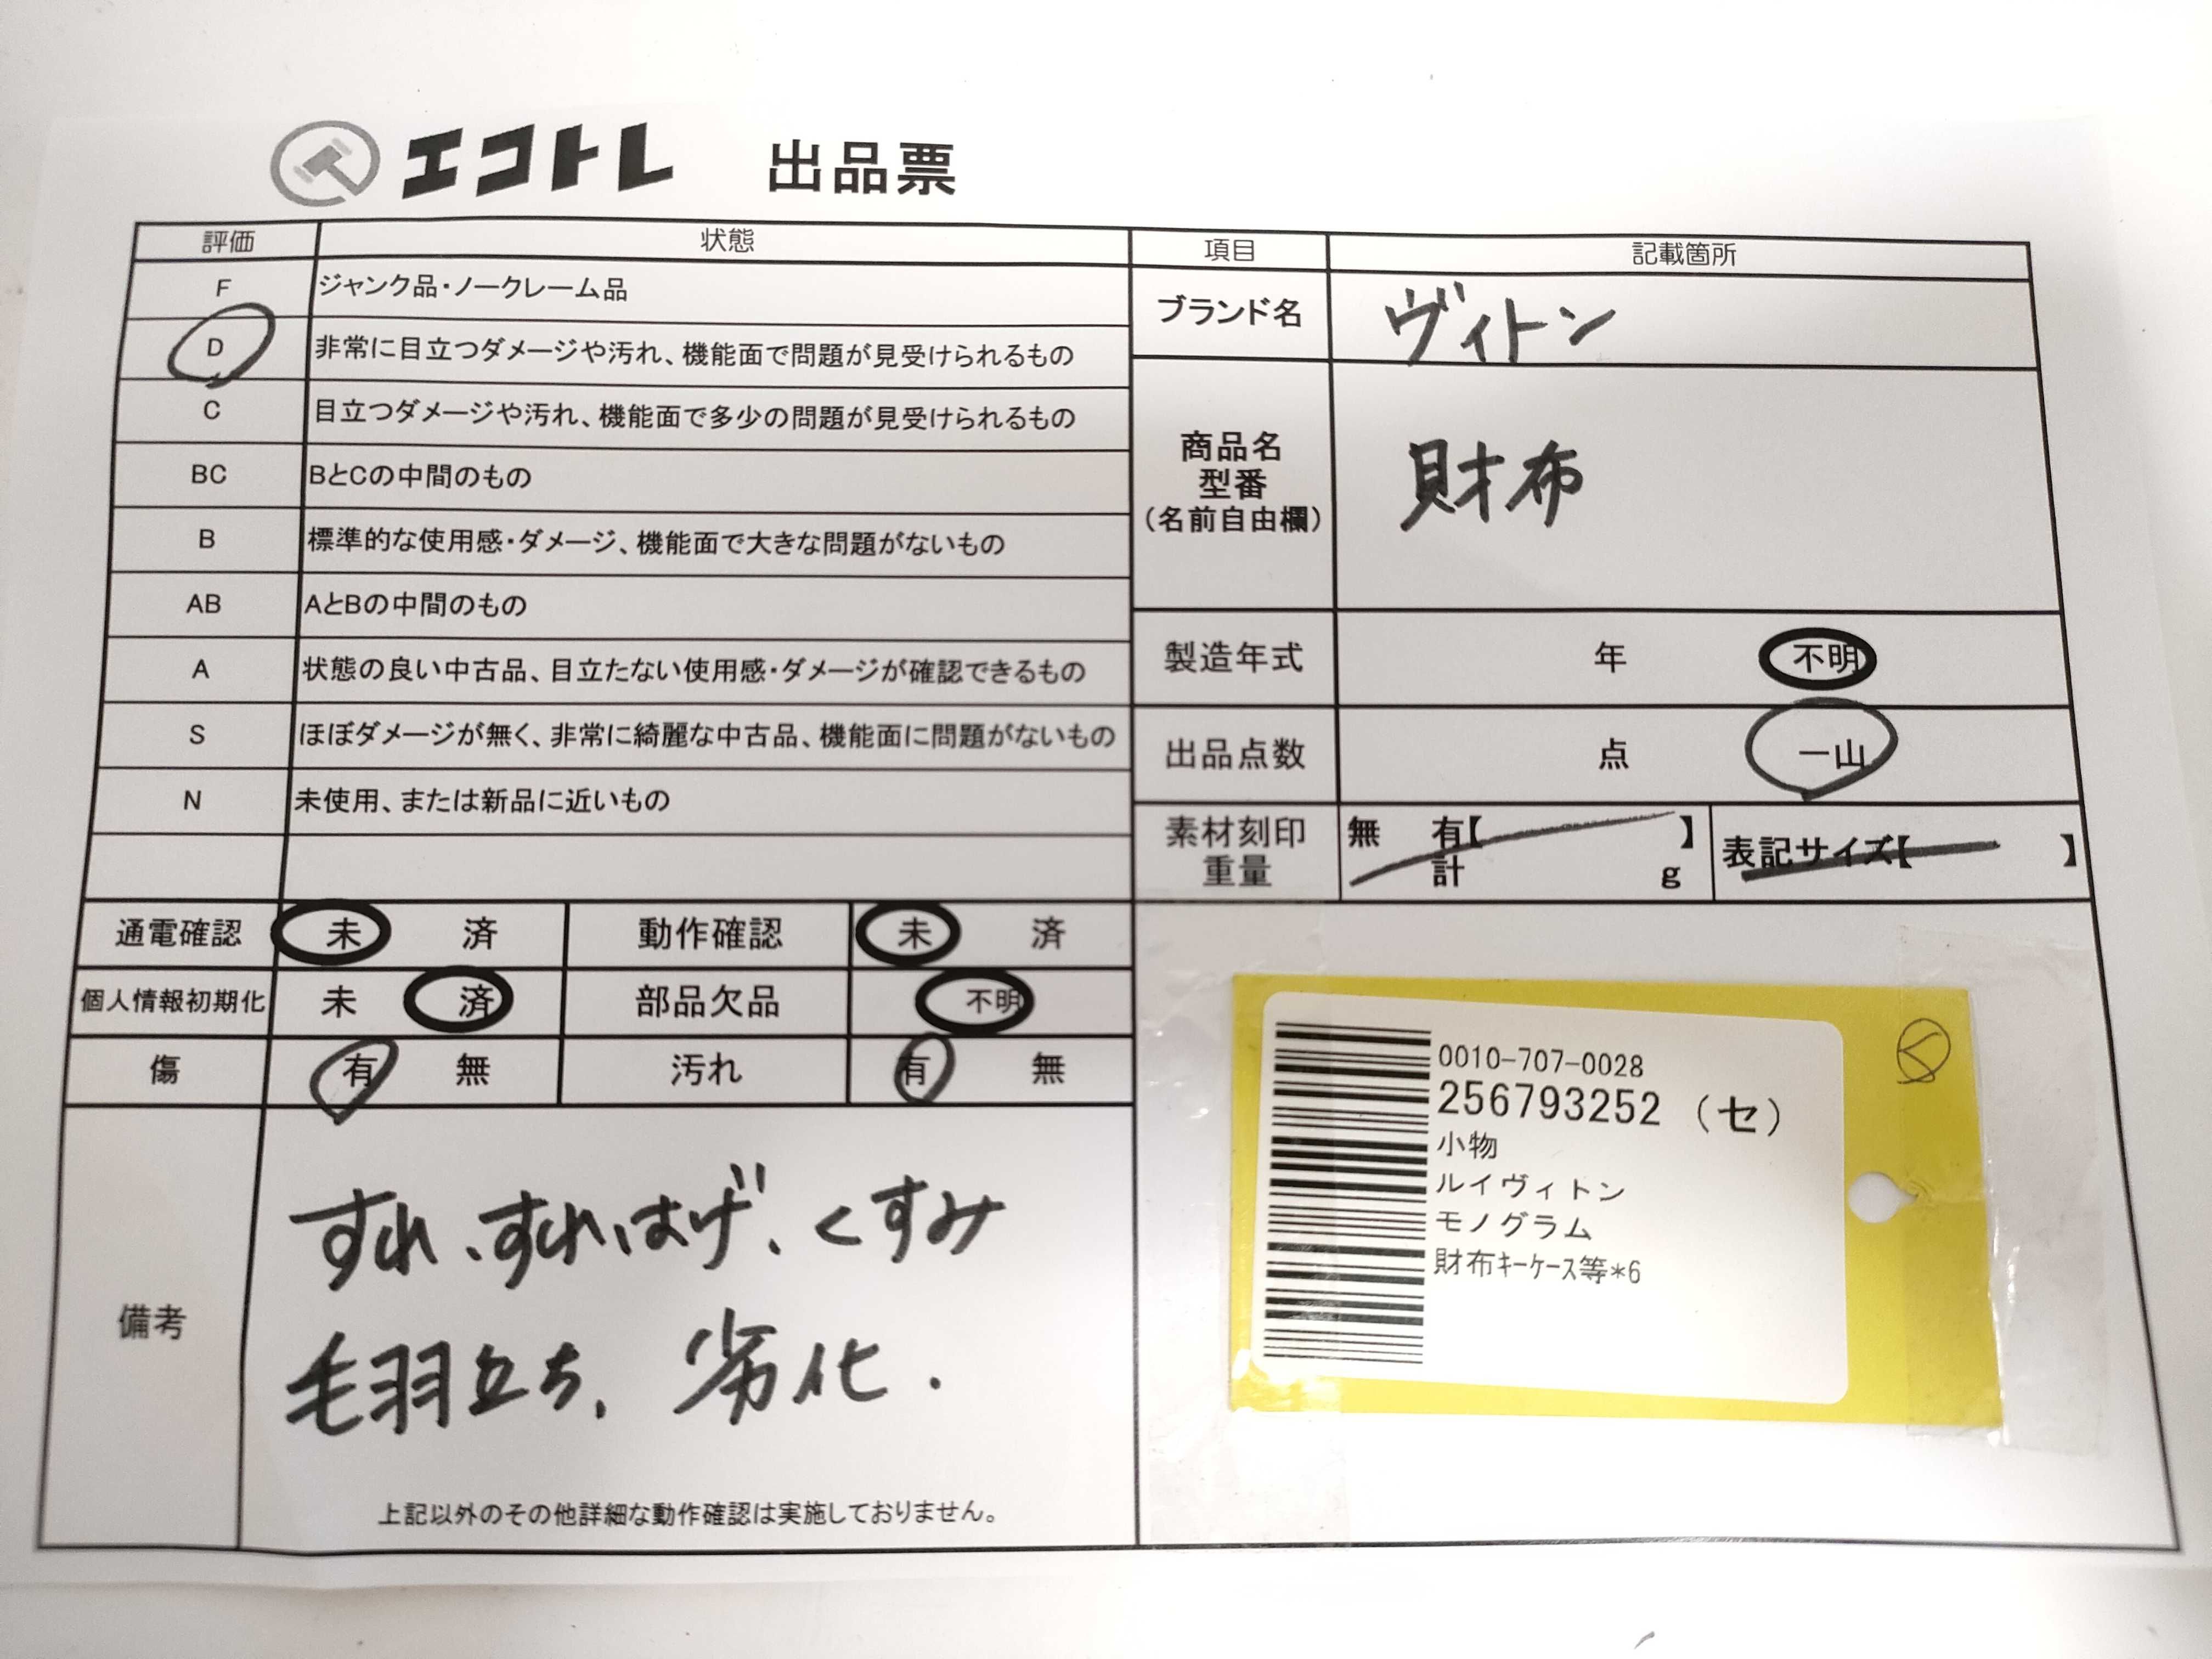 エコトレ 出品票
評価 状態
F ジャンク品・ノークレーム品
D 非常に目立つダメージや汚れ、機能面で問題が見受けられるもの
C 目立つダメージや汚れ、機能面で多少の問題が見受けられるもの
BC BとCの中間のもの
B 標準的な使用感・ダメージ、機能面で大きな問題がないもの
AB AとBの中間のもの
A 状態の良い中古品、目立たない使用感・ダメージが確認できるもの
S ほぼダメージが無く、非常に綺麗な中古品、機能面に問題がないもの
N 未使用、または新品に近いもの
項目 記載箇所
ブランド名 ヴィトン
商品名
型番
(名前自由欄)
財布
製造年式 年 不明
出品点数 点 一山
素材刻印
重量
無 有【 】
計 g
表記サイズ【 】
通電確認 未 済 動作確認 未 済
個人情報初期化 未 済 部品欠品 不明
傷 有 無 汚れ 有 無
備考
すれ、すれ、はげ、くすみ
毛羽立ち、劣化.
上記以外のその他詳細な動作確認は実施しておりません。
0010-707-0028
256793252 (セ)
小物
ルイヴィトン
モノグラム
財布ｷｰｹｰｽ等*6